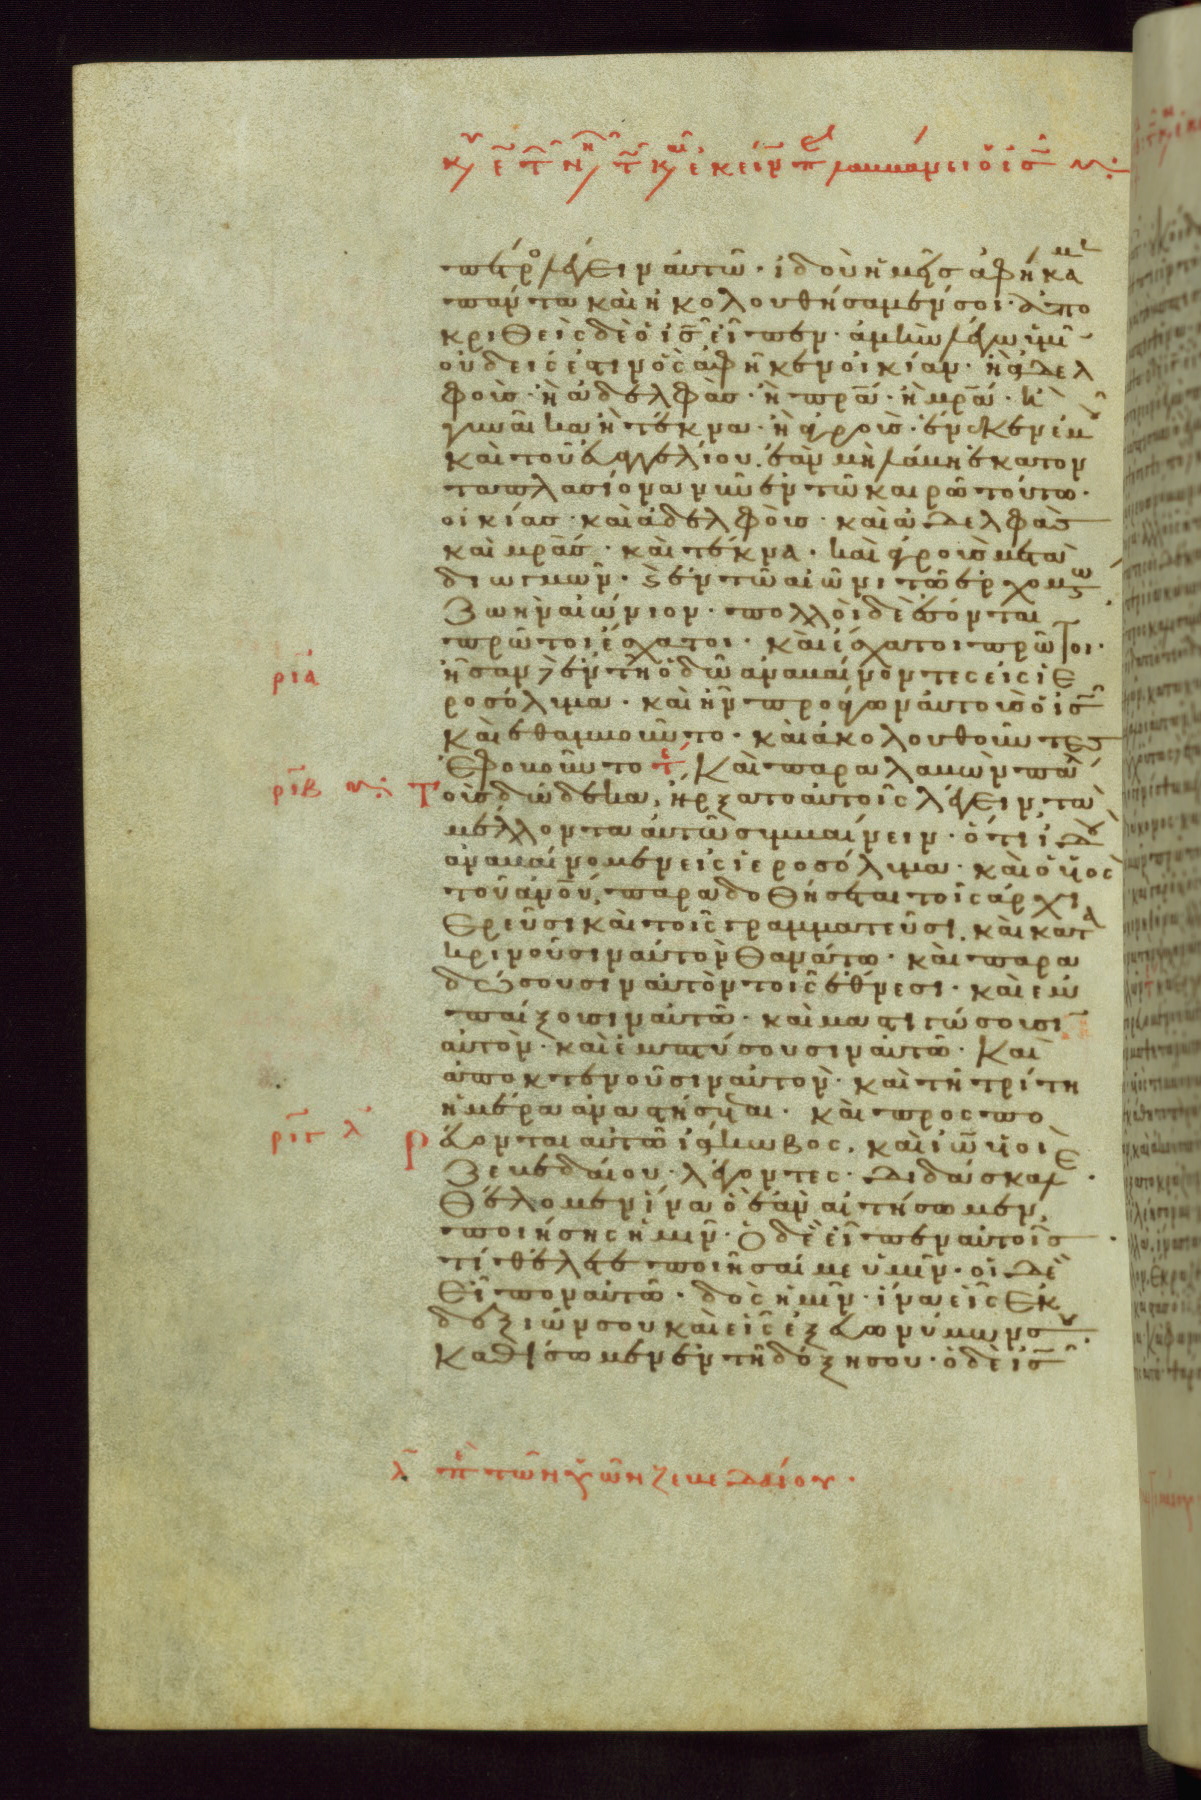 πέτρο λέγειν αὐτῶ· ἰδοὺ ἡμεῖς ἀφήκαμ
πάντα καὶ ἠκολουθήσαμεν σοι· ἀπο
κριθεὶς δὲ ὁ ις εἶπεν· ἀμὴν λέγω ὑμῖ
οὐδείς ἐστιν ὃς ἀφῆκεν οἰκίαν· ἢ ἀδελ
φοὺς· ἢ ἀδελφὰς· ἢ πρα· ἢ μρα· ἢ
γυναῖκα ἢ τέκνα· ἢ ἀγροὺς· ἕνεκεν ἐμοῦ
καὶ τοῦ εὐαγγελίου· ἐὰν μὴ λάβη ἑκατον
ταπλασίονα νῦν ἐν τῶ καιρῶ τούτω·
οἰκίας· καὶ ἀδελφοὺς· καὶ ἀδελφὰς
καὶ μρας· καὶ τέκνα· καὶ ἀγροὺς μετὰ
διωγμῶν· καὶ ἐν τῶ αἰῶνι τῶ ἐρχομένω
ζωὴν αἰώνιον· πολλοὶ δὲ ἔσονται
πρῶτοι ἔσχατοι· καὶ ἔσχατοι πρῶτοι·
ρια ἦσαν δὲ ἐν τῆ ὁδῶ ἀναβαίνοντες εἰς ἱε
ροσόλυμα· καὶ ἦν προάγων αὐτοὺς ὁ ις
καὶ ἐθαμβοῦντο· καὶ ἀκολουθοῦντες
ἐφοβοῦντο τε καὶ παραλαβὼν πάλ
ριβ τοὺς δώδεκα, ἤρξατο αὐτοῖς λέγειν τὰ
μέλλοντα αὐτῶ συμβαίνειν· ὅτι ἰδοὺ
ἀναβαίνομεν εἰς ἱεροσόλυμα· καὶ ὁ υἱὸς
τοῦ ανου, παραδοθήσεται τοῖς ἀρχι
ερεῦσι καὶ τοῖς γραμματεῦσι, καὶ κατα
κρινοῦσιν αὐτὸν θανάτω· καὶ παρα
δώσουσιν αὐτὸν τοῖς ἔθνεσι· καὶ ἐμ
παίξουσιν αὐτῶ· καὶ μαστιγώσουσι
αὐτὸν· καὶ ἐμπτύσουσιν αὐτῶ· καὶ
ἀποκτενοῦσιν αὐτὸν· καὶ τῆ τρίτη
ἡμέρα ἀναστήσεται· καὶ προσπο
ριγ λ ρεύονται αὐτῶ ἰάκωβος, καὶ ιω υἱοὶ
ζεβεδαίου· λέγοντες· διδάσκαλε·
θέλομεν ἵνα ὃ ἐὰν αἰτήσωμεν,
ποιήσης ἡμῖν· ὁ δὲ εἶπεν αὐτοῖς·
τί θέλετε ποιῆσαί με ὑμῖν· οἱ δὲ
εἶπον αὐτῶ· δὸς ἡμῖν· ἵνα εἷς ἐκ
δεξιῶν σου καὶ εἷς ἐξ εὐωνύμων σου·
καθίσωμεν ἐν τῆ δόξη σου· ὁ δὲ ις
λ πε τῶν υἱῶν ζεβεδαίου·